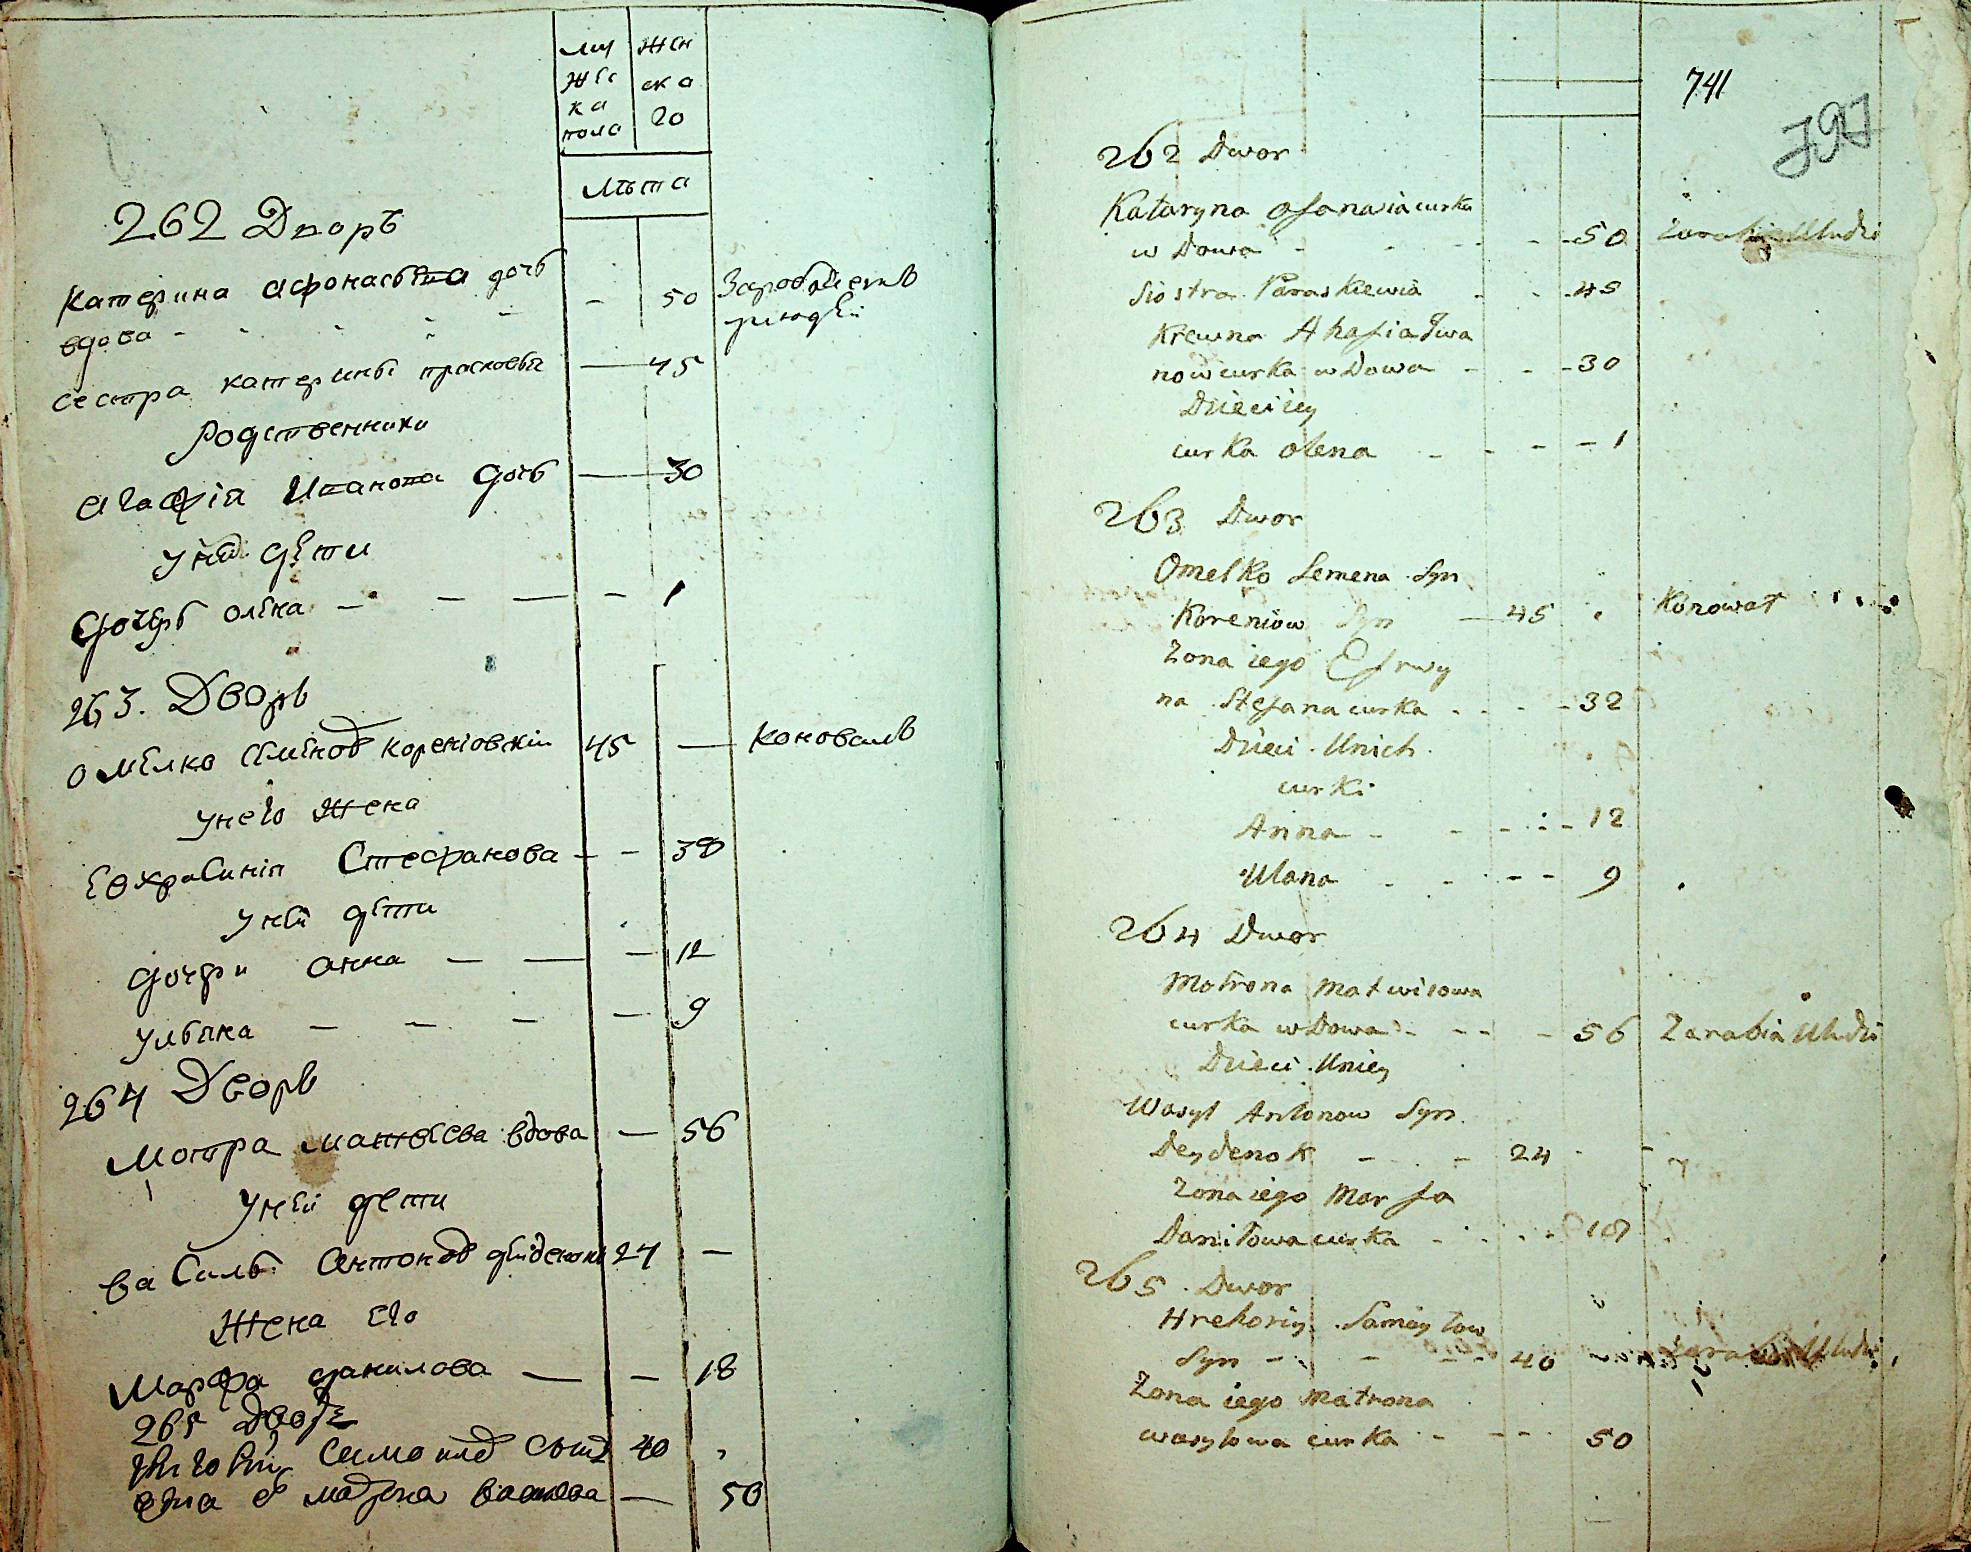 му жеска пола
женскаго
лѣта
262 Дворъ
Катерина Афонасьева дочь
вдова - 50 Заработ людей
сестра катерины прасковья — 45
Родственники
Агафія Иванова дочь — 30
У ней дети
дочерь олена — — — - 1
263. Дворъ
Омелко Семенов корениовскій 45 — коновалъ
У него Жена
Евхрасиніа Стефанова - - 38
У ней дети
дочери анна — — — 12
Ульяна — — — — 9
264 Дворъ
Мотра матвеева вдова — 56
У ней дети
Василь Антонов дейденокъ 24 —
Жена его
Марфа данилова — — 18
265 Дворъ
Григорий Самоилов Сынъ 40
жена ег матрона — 50
741
262 Dwor
Kataryna Afanasia curka
wDowa - - - 50 Zarabia Uludzi
Siostra Paraskiewia - - 45
Krewna Ahafia Iwa
now curka wDowa - - - 30
Dzieci iey
curka olena - - - - 1
263 Dwor
Omelko Semena Syn
Koreniow Syn — 45 Konował
Zona iego Efrwy
na Stefana curka - - - 32
Dzieci Unich
curki
Anna - - - - - 12
Ulana - - - - 9
264 Dwor
Matrona Matwiiowa
curka wDowa - - - - 56 Zarabia Uludzi
Dzieci Uniey
Wasyl Antonow Syn
Deydenok - - - 24
Zona iego Marfa
Daniłowa curka - - - - 18
265 Dwor
Hrehoriy Samoyłow
Syn - - - - 40 Zarabia Uludzi
Zona iego Matrona
wasylowa curka - - - - 50